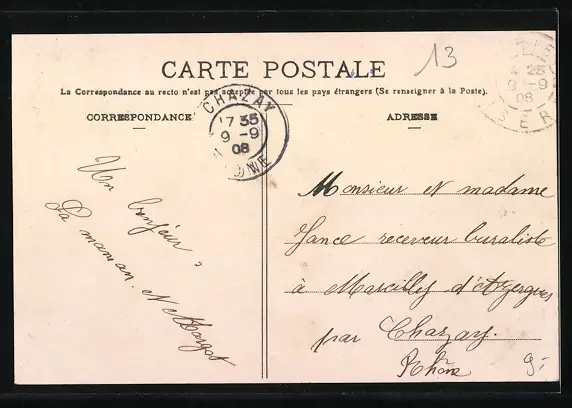 13
CARTE POSTALE
La Correspondance au recto n'est pas acceptée par tous les pays étrangers (Se renseigner à la Poste).
CORRESPONDANCE
ADRESSE
CHAZAY
7 35
9 -9
08
RHONE
25
-9
08
Un bonjour
La maman. et Margot
Monsieur et madame
Jance receveur buraliste
à Marcilly d'Azergues
par Chazay.
Rhône
9.-